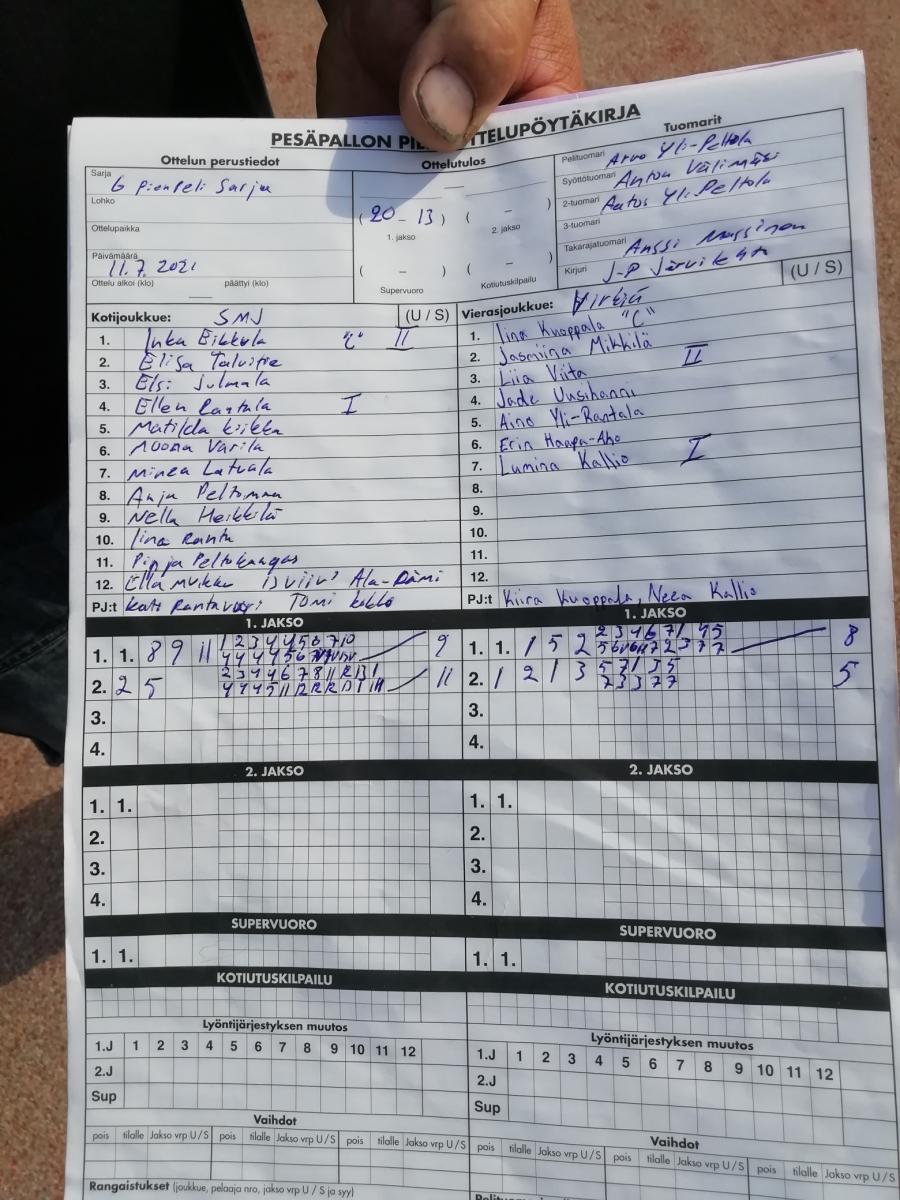 PESÄPALLON OTTELUPÖYTÄKIRJA
Ottelun perustiedot
Sarja
G Pienpeli Sarja
Lohko
Ottelupaikka
Päivämäärä
11.7.2021
Ottelu alkoi (klo) päättyi (klo)
Ottelutulos
( 20 – 13 ) ( – )
1. jakso 2. jakso
( – ) ( – )
Supervuoro Kotiutuskilpailu
Tuomarit
Pelituomari Arvo Yli-Peltola
Syöttötuomari Anton Välimäki
2-tuomari Aatos Yli-Peltola
3-tuomari
Takarajatuomari Anssi
Kirjuri J-P
Kotijoukkue: SMJ (U / S)
1. Inka "C" II
2. Elisa Talvitie
3. Elsi Julmala
4. Ellen Rantala I
5. Matilda Kiikka
6. Moona Varila
7. Minea Latvala
8. Anja
9. Nella Heikkilä
10. Iina Ranta
11. Pinja Peltokangas
12. Ella
PJ:t Tomi
Vierasjoukkue: Virkiä (U / S)
1. Iina Kuoppala "C"
2. Jasmiina Mikkilä
3. Liia Viita II
4. Jade Uusihanni
5. Aino Yli-Rantala
6. Erin Haapa-Aho
7. Lumina Kallio I
8.
9.
10.
11.
12.
PJ:t Kiira Kuoppala, Neea Kallio
1. JAKSO
1. 1. 8 9 11 9
2. 2 5 11
3.
4.
1. JAKSO
1. 1. 1 5 2 8
2. 1 2 1 3 5
3.
4.
2. JAKSO
1. 1.
2.
3.
4.
2. JAKSO
1. 1.
2.
3.
4.
SUPERVUORO
1. 1.
SUPERVUORO
1. 1.
KOTIUTUSKILPAILU
KOTIUTUSKILPAILU
Lyöntijärjestyksen muutos
1.J 1 2 3 4 5 6 7 8 9 10 11 12
2.J
Sup
Lyöntijärjestyksen muutos
1.J 1 2 3 4 5 6 7 8 9 10 11 12
2.J
Sup
Vaihdot
pois tilalle Jakso vrp U / S pois tilalle Jakso vrp U / S pois tilalle Jakso vrp U / S
Vaihdot
pois tilalle Jakso vrp U / S pois tilalle Jakso vrp U / S pois tilalle Jakso vrp U / S
Rangaistukset (joukkue, pelaaja nro, jakso vrp U / S ja syy)